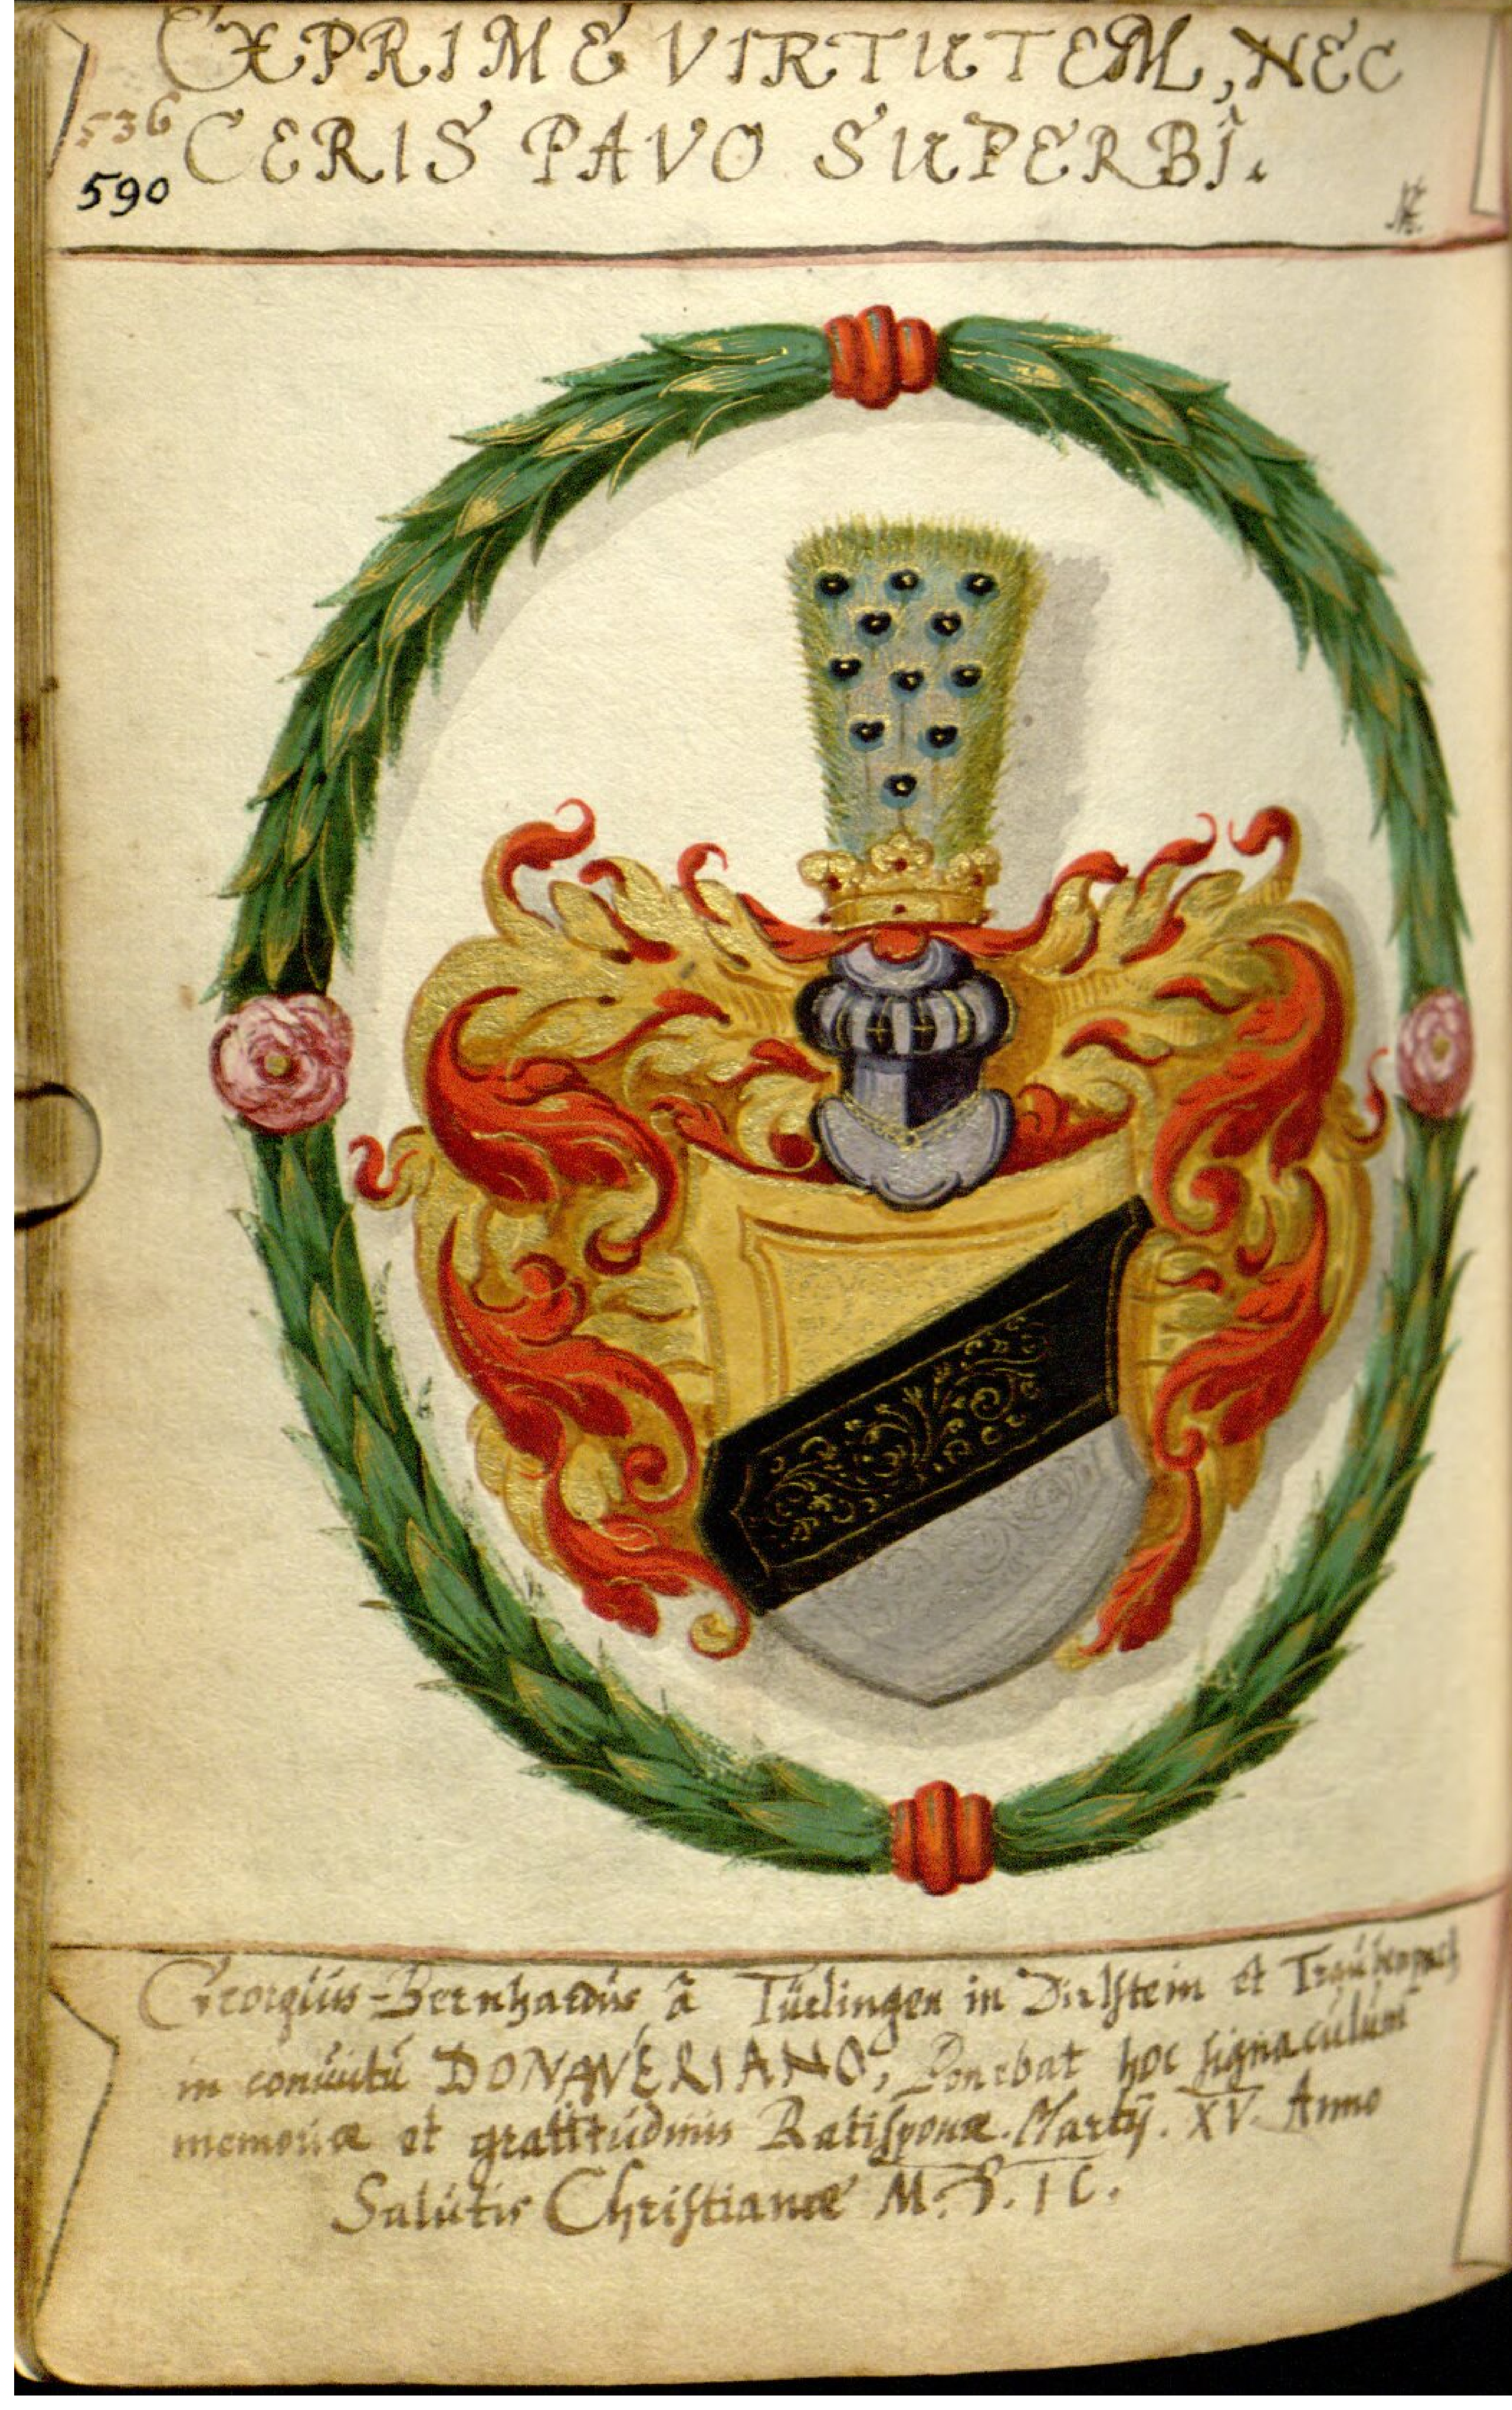 EXPRIME VIRTUTEM, NEC
536
CERIS PAVO SUPERBĨ.
590
Georgius-Bernhardus â Türlingen in Dirlstein et Traubenpach
in conuitũ DONAWERIANO, Ponebat hoc signaculum
memoriæ et gratitudinis Ratisponæ. Martij. XV. Anno
Salutis Christianæ M. D. IC.